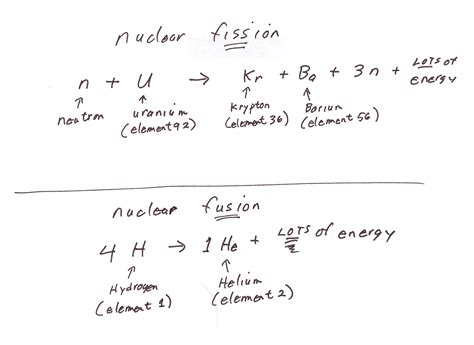 nuclear fission
n + U → Kr + Ba + 3n + LOTS of energy
neutron
uranium (element 92)
Krypton (element 36)
Barium (element 56)
nuclear fusion
4 H → 1 He + LOTS of energy
Hydrogen (element 1)
Helium (element 2)